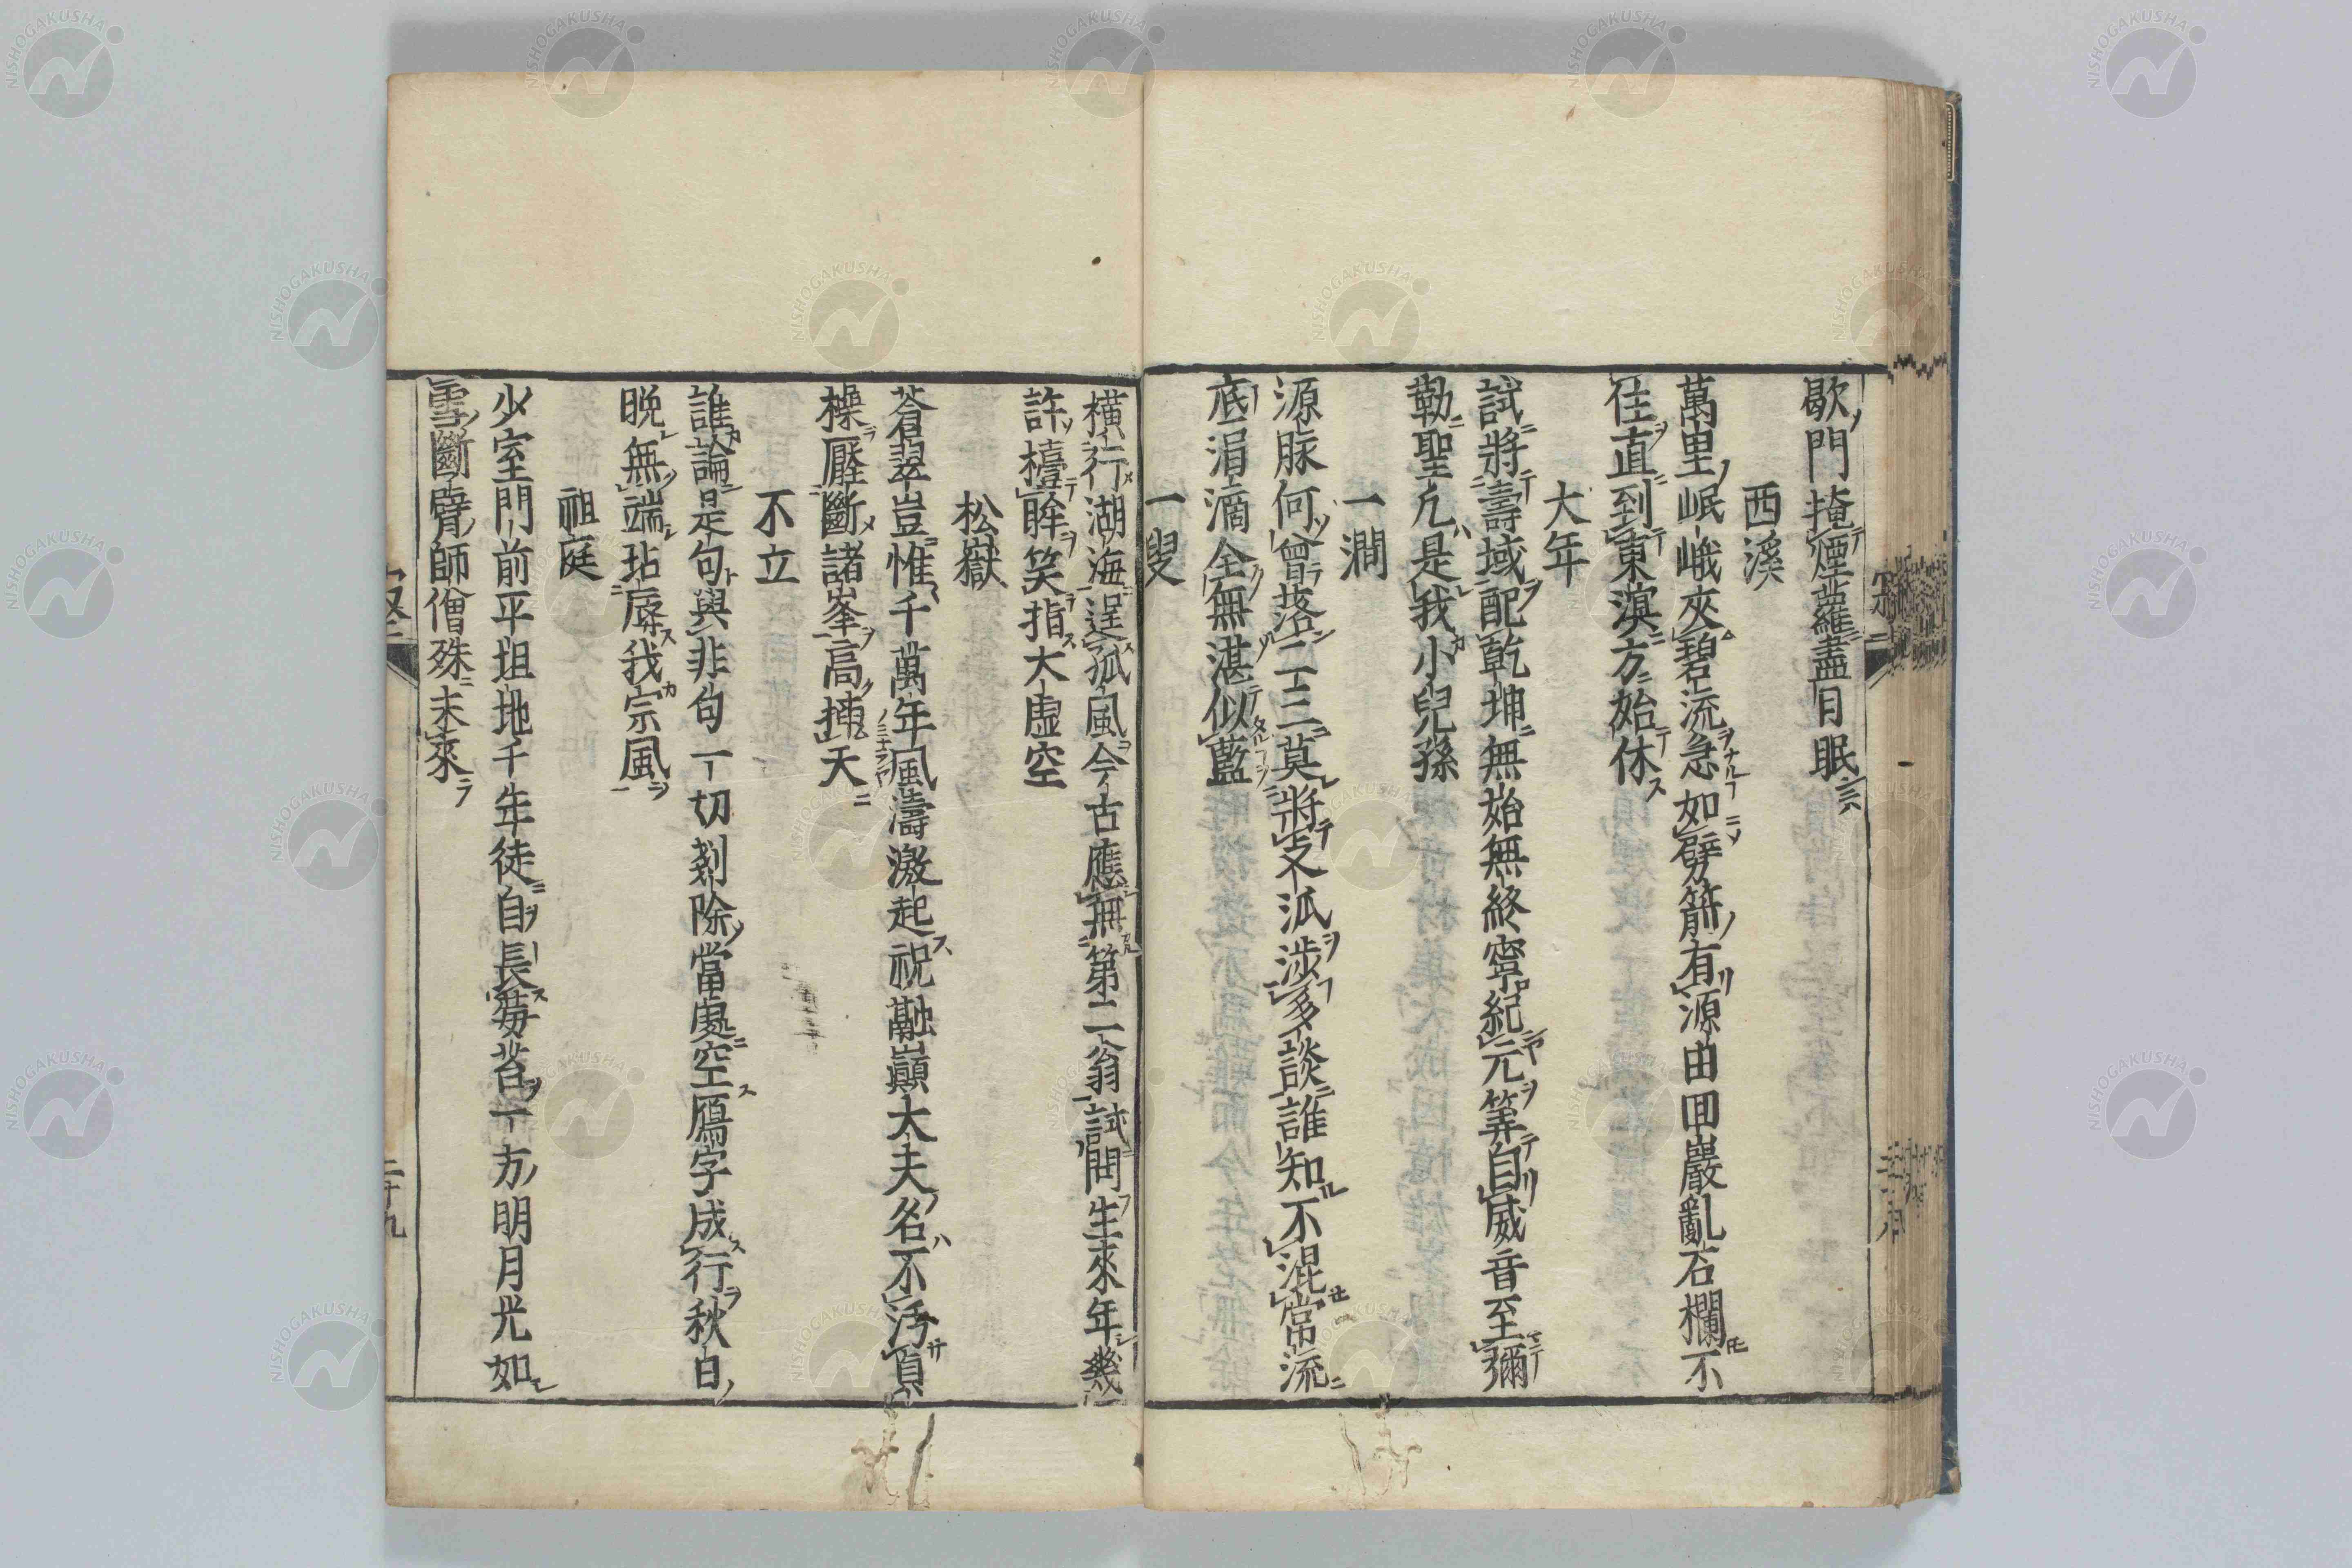 歇門掩煙蘿盡日眠
西溪
萬里岷峨夾碧流急如劈箭有源由回巖亂石欄不
住直到東溟方始休
大年
試將壽域配乾坤無始無終寧紀元筭自威音至彌
勒聖凡是我小兒孫
一澗
源脉何曾落二三莫將支派涉多談誰知不混常流
底涓滴全無湛似藍
一叟
横行湖海逞孤風今古應無第二翁試問生來年幾
許擡眸笑指大虛空
松嶽
蒼翠豈惟千萬年風濤激起祝融巔大夫名不汚貞
操壓斷諸峯高揷天
不立
誰論是句與非句一切剗除當處空鴈字成行秋日
晚無端玷辱我宗風
祖庭
少室門前平坦地千年徒自長莓苔一方明月光如
雪斷臂師僧殊未來
二十九